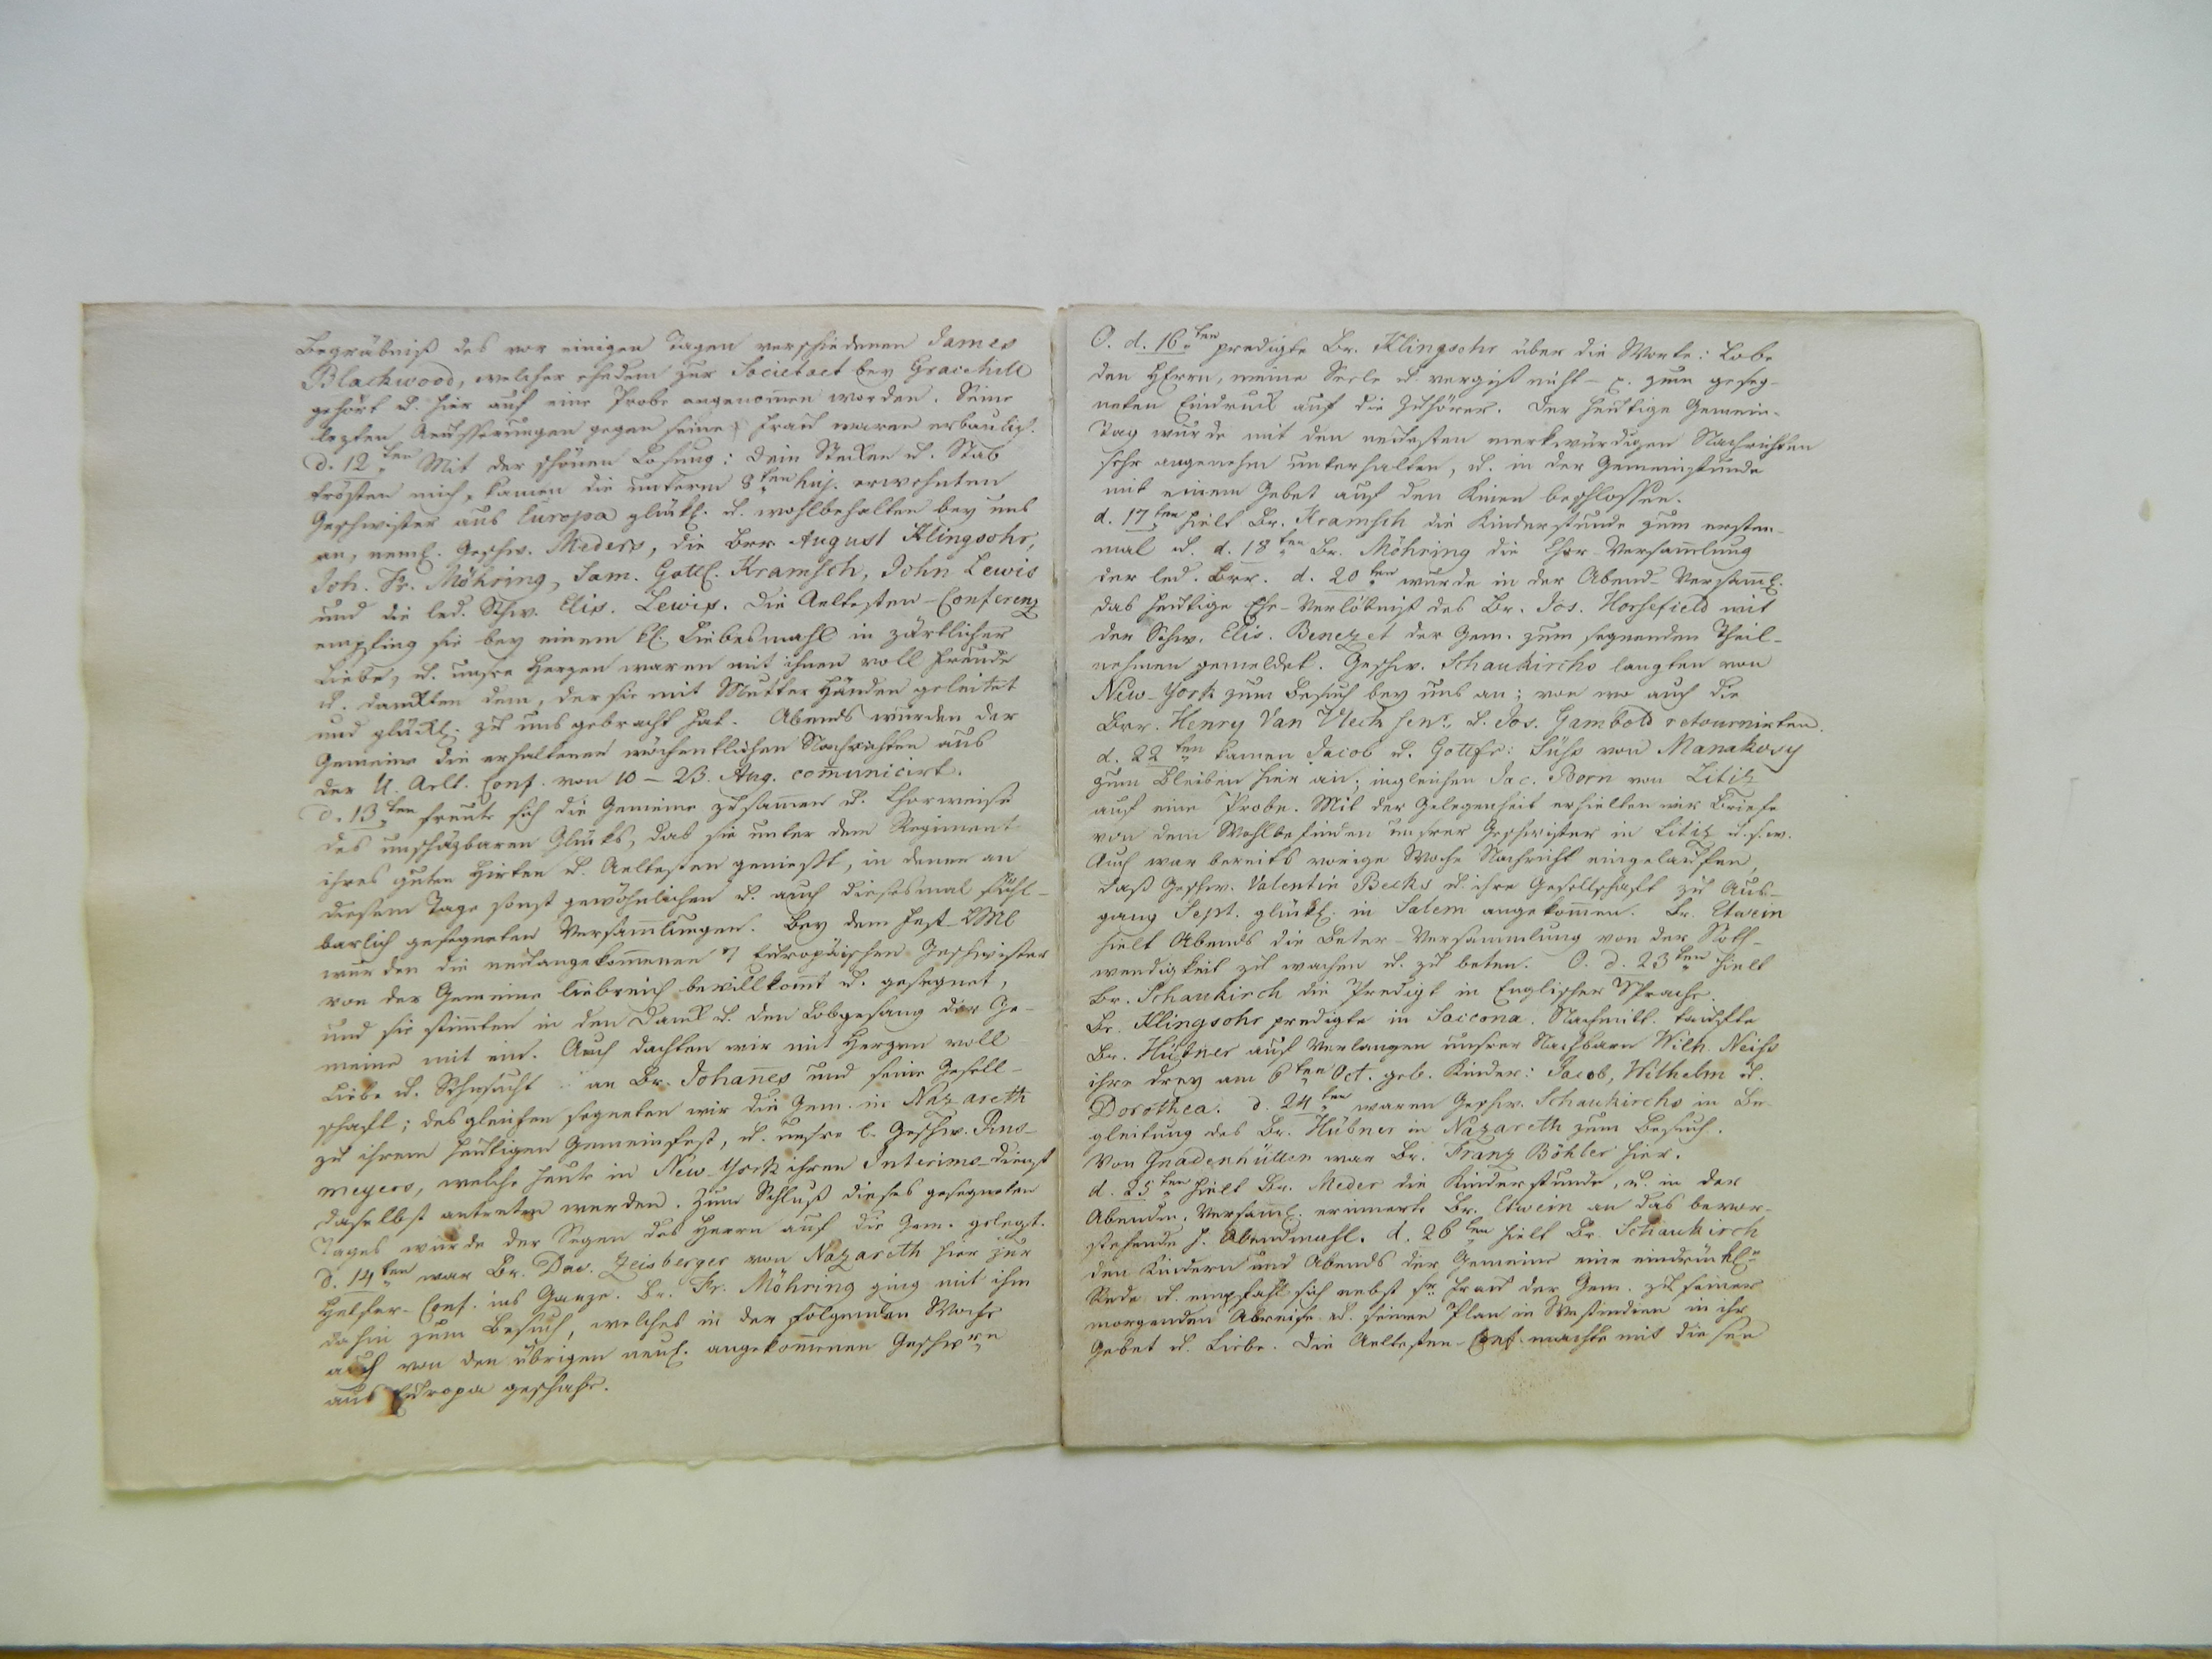 Begräbniß des vor einigen Tagen verschiedenen James
Blackwood, welcher ehedem zur Societaet bey Gracehill
gehört u. hier auf eine Probe angenom̅en worden. Seine
lezten Aeusserungen gegen seine Frau waren erbaulich.
d. 12ten Mit der schönen Losung: Dein Stecken u. Stab
trösten mich, kamen die unterm 8ten huj. erwehnten
Geschwister aus Europa glückl. u. wohlbehalten bey uns
an, neml. Geschw. Meders, die Brr August Klingsohr,
Joh. Fr. Möhring, Sam. Gottl. Kramsch, John Lewis
und die led. Schw. Elis. Lewis. Die Aeltesten-Conferenz
empfing sie bey einem kl. Liebesmahl in zärtlicher
Liebe, u. unsre Herzen waren mit ihnen voll Freude
u. dankten dem, der sie mit Mutter Händen geleitet
und glückl. zu uns gebracht hat. Abends wurden der
Gemeine die erhaltenen wöchentlichen Nachrichten aus
der U. Aelt. Conf. von 10 - 23. Aug. com̅unicirt.
d. 13ten freute sich die Gemeine zusam̅en u. Chorweise
des unschäzbaren Glücks, das sie unter dem Regiment
ihres guten Hirten u. Aeltesten genießt, in denen an
diesem Tage sonst gewöhnlichen u. auch diesesmal fühl-
barlich gesegneten Versam̅lungen. Bey dem Fest-LMl
wurden die neuangekom̅enen 7 Europäischen Geschwister
von der Gemeine liebreich bewillkom̅t u. gesegnet,
und sie stim̅ten in den Dank u. den Lobgesang der Ge-
meine mit ein. Auch dachten wir mit Herzen voll
Liebe u. Sehnsucht an Br. Johan̅es und seine Gesell-
schaft; desgleichen segneten wir die Gem. in Nazareth
zu ihrem heutigen Gemeinfest, u. unsre l. Geschw. Rus-
meyers, welche heute in New-York ihren Interims-dienst
daselbst antreten werden. Zum Schluß dieses gesegneten
Tages wurde der Segen des Herrn auf die Gem. gelegt.
d. 14ten war Br. Dav. Zeisberger von Nazareth hier zur
Helfer-Conf. ins Ganze. Br. Fr. Möhring ging mit ihm
dahin zum Besuch, welches in der folgenden Woche
auch von den übrigen neul. angekom̅enen Geschwrn
aus Europa geschahe.
O. d. 16ten predigte Br. Klingsohr über die Worte: Lobe
den HErrn, meine Seele u. vergiß nicht - p. zum geseg-
neten Eindruck auf die Zuhörer. Der heutige Gemein-
Tag wurde mit den neuesten merkwürdigen Nachrichten
sehr angenehm unterhalten, u. in der Gemeinstunde
mit einem Gebet auf den Knien beschlossen.
d. 17ten hielt Br. Kramsch die Kinderstunde zum ersten-
mal u. d. 18ten Br. Möhring die Chor-Versam̅lung
der led. Brr. d. 20ten wurde in der Abend-Versam̅l.
das heutige Ehe-Verlöbniß des Br. Jos. Horsefield mit
der Schw. Elis. Benezet der Gem. zum segnenden Theil-
nehmen gemeldet. Geschw. Schaukirchs langten von
New-York zum Besuch bey uns an; von wo auch die
Brr. Henry Van Vleck senr. u. Jos. Gambold retournirten.
d. 22ten kamen Jacob u. Gottfr: Sühs von Manakosy
zum Bleiben hier an; ingleichen Jac. Born von Litiz
auf eine Probe. Mit der Gelegenheit erhielten wir Briefe
von dem Wohlbefinden unsrer Geschwister in Litiz u.s.w.
Auch war bereits vorige Woche Nachricht eingelauffen,
daß Geschw. Valentin Becks u. ihre Gesellschaft zu Aus-
gang Sept. glückl. in Salem angekom̅en. Br. Etwein
hielt Abends die Beter-Versammlung von der Noth-
wendigkeit zu wachen u. zu beten. O. d. 23ten hielt
Br. Schaukirch die Predigt in Englischer Sprache.
Br. Klingsohr predigte in Saccona. Nachmitt. taufte
Br. Hübner auf Verlangen unsrer Nachbarn Wilh. Neiss
ihre drey am 6ten Oct. geb. Kinder: Jacob, Wilhelm u.
Dorothea. d. 24ten waren Geschw. Schaukirchs in Be-
gleitung des Br. Hübner in Nazareth zum Besuch.
Von Gnadenhütten war Br. Franz Böhler hier.
d. 25ten hielt Br. Meder die Kinderstunde, u. in der
Abend. Versam̅l. erinnerte Br. Etwein an das bevor-
stehende h. Abendmahl. d. 26ten hielt Br. Schaukirch
den Kindern und Abends der Gemeine eine eindrückl.
Rede u. empfahl sich nebst sr. Frau der Gem. zu seiner
morgenden Abreise u. seinen Plan in Westindien in ihr
Gebet u. Liebe. Die Aeltesten-Conf. machte mit diesen